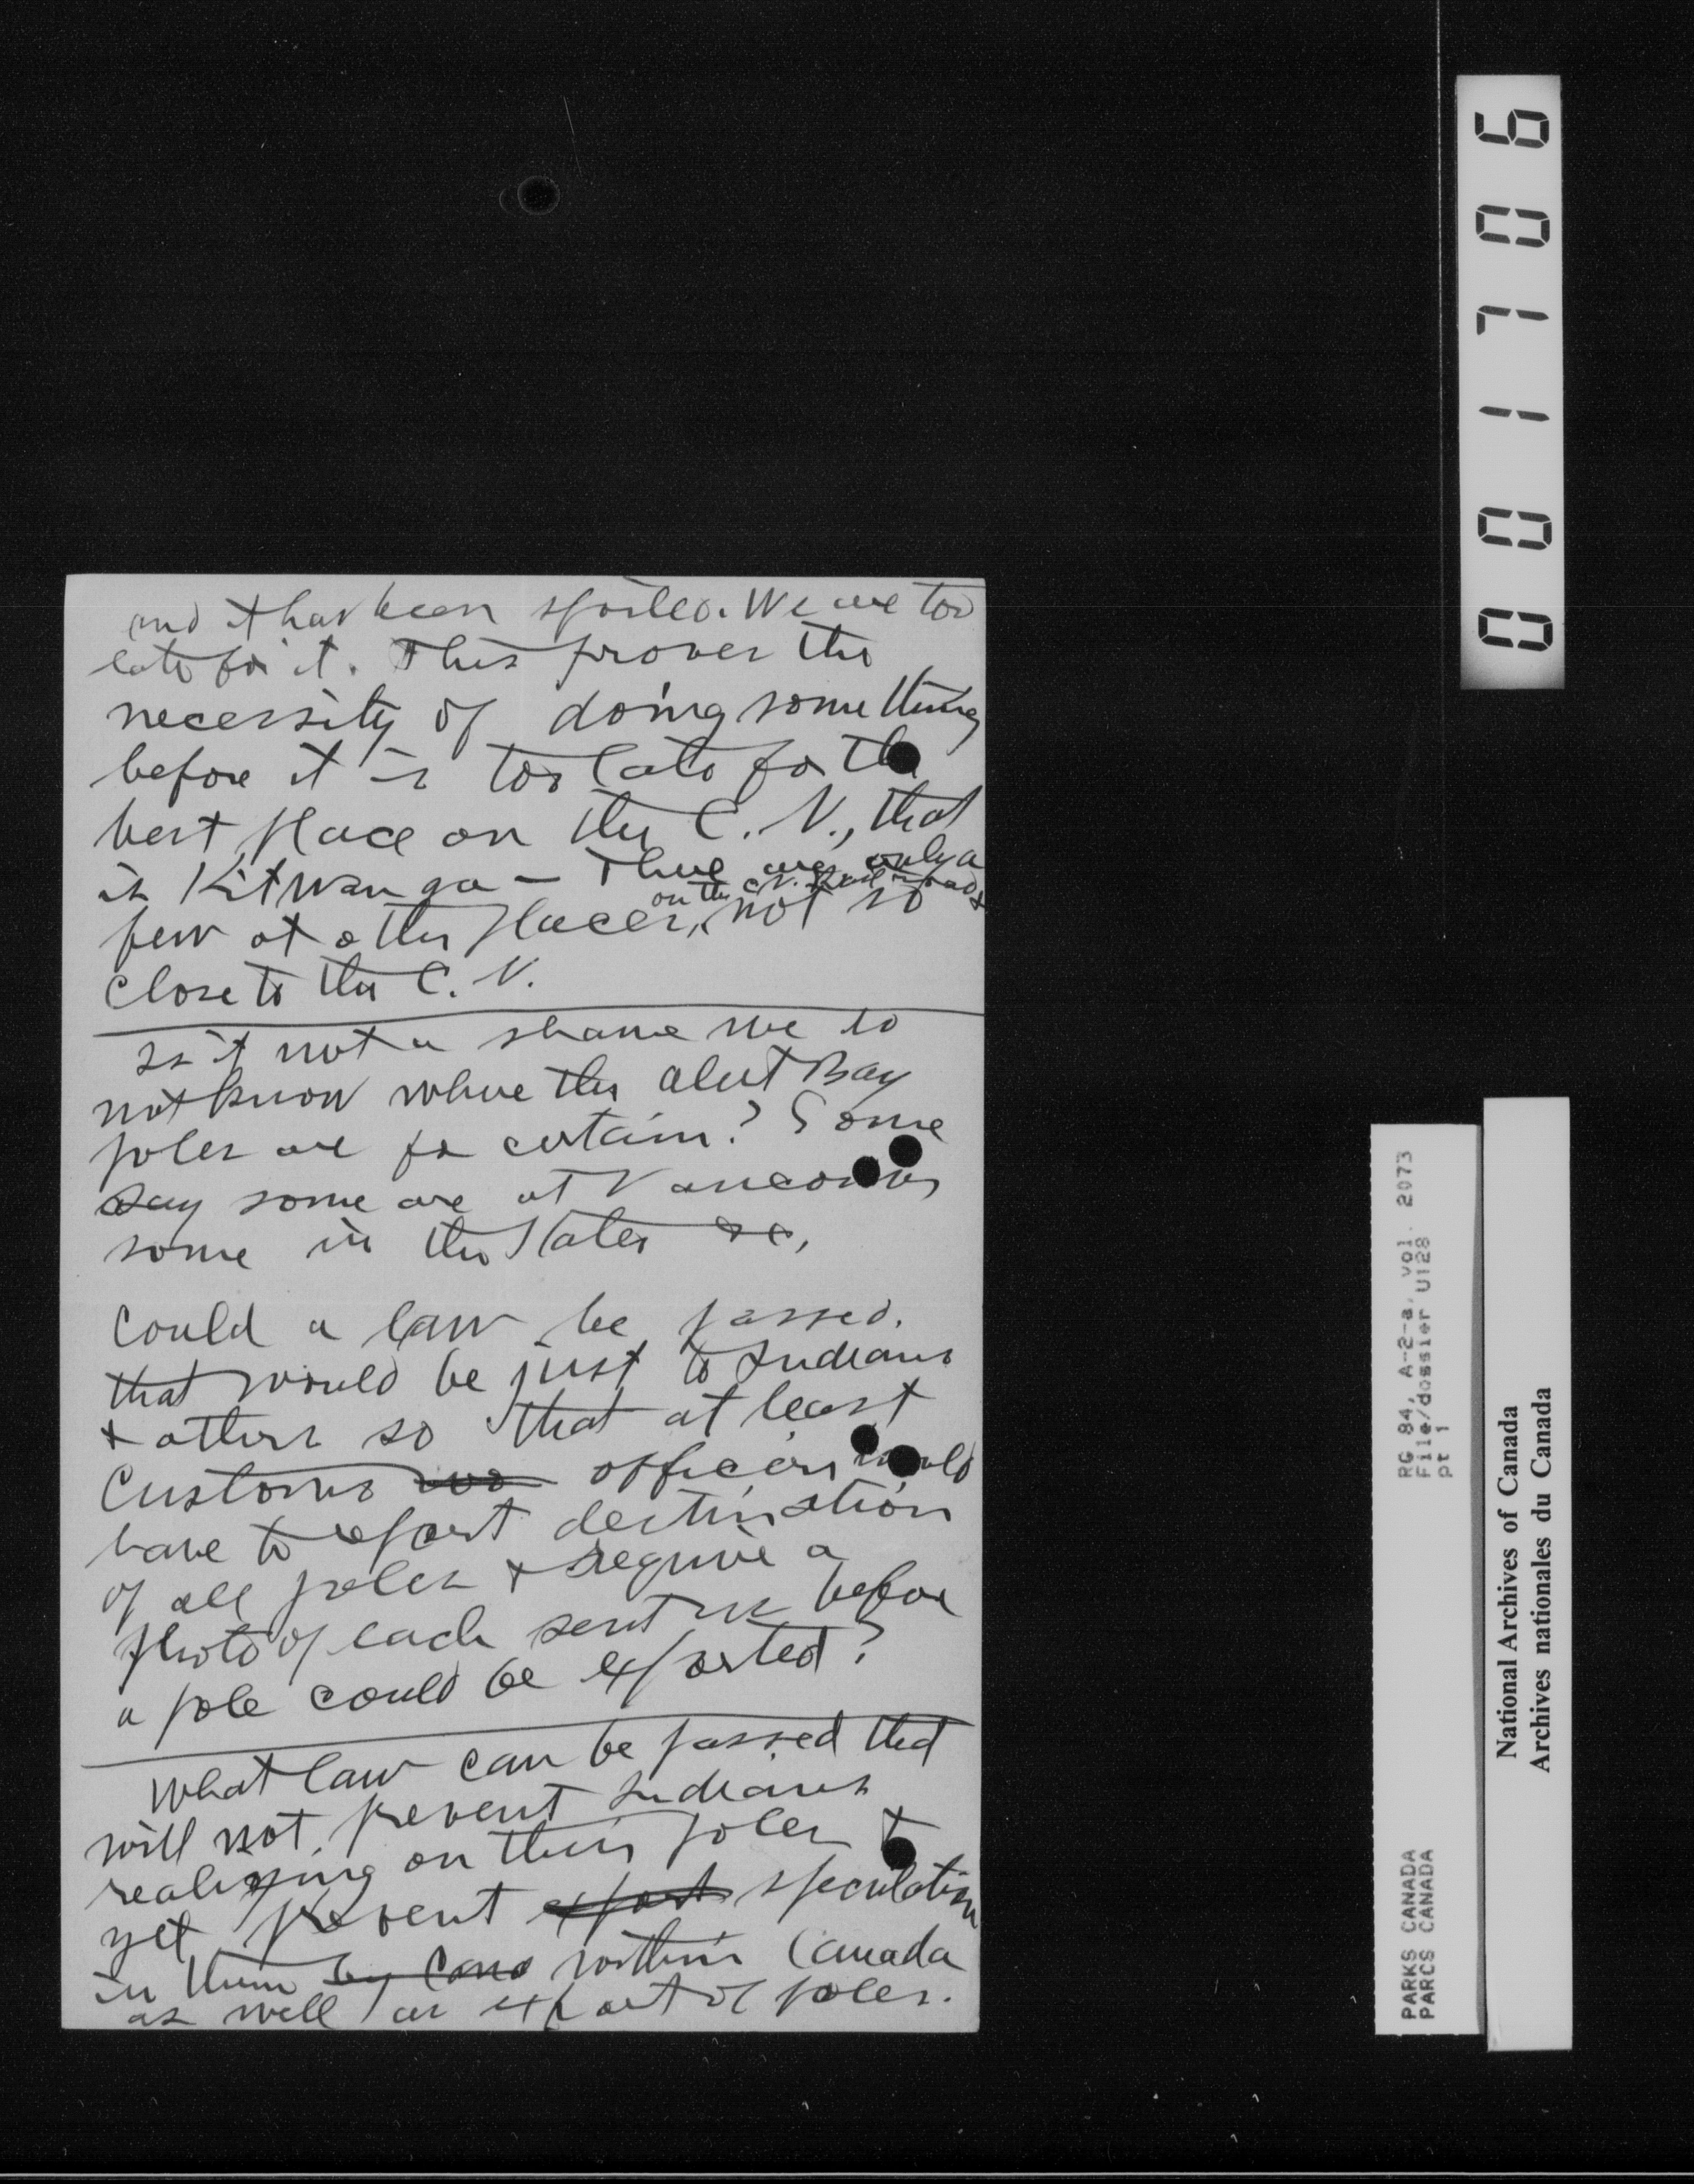 and it has been spoiled. We are too
late for it. This proves the
necessity of doing something
before it is too late for the
best place on the C. N., that
is Kitwanga – There are only a
on the C. N. &
few at other places, not so
close to the C. N.
Is it not a shame we do
not know where the Alert Bay
poles are for certain? Some
say some are at Vancouver
some in the States &c,
Could a law be passed.
that would be just to Indians
& others so that at least
Customs officers would
have to report destination
of all poles & require a
photo of each sent us before
a pole could be exported?
What law can be passed that
will not prevent Indians
realizing on their poles &
yet prevent export speculation
in them by Cana within Canada
as well as export of poles.
001706
RG 84, A-2-a, vol. 2073
File/dossier U128
pt 1
PARKS CANADA
PARCS CANADA
National Archives of Canada
Archives nationales du Canada